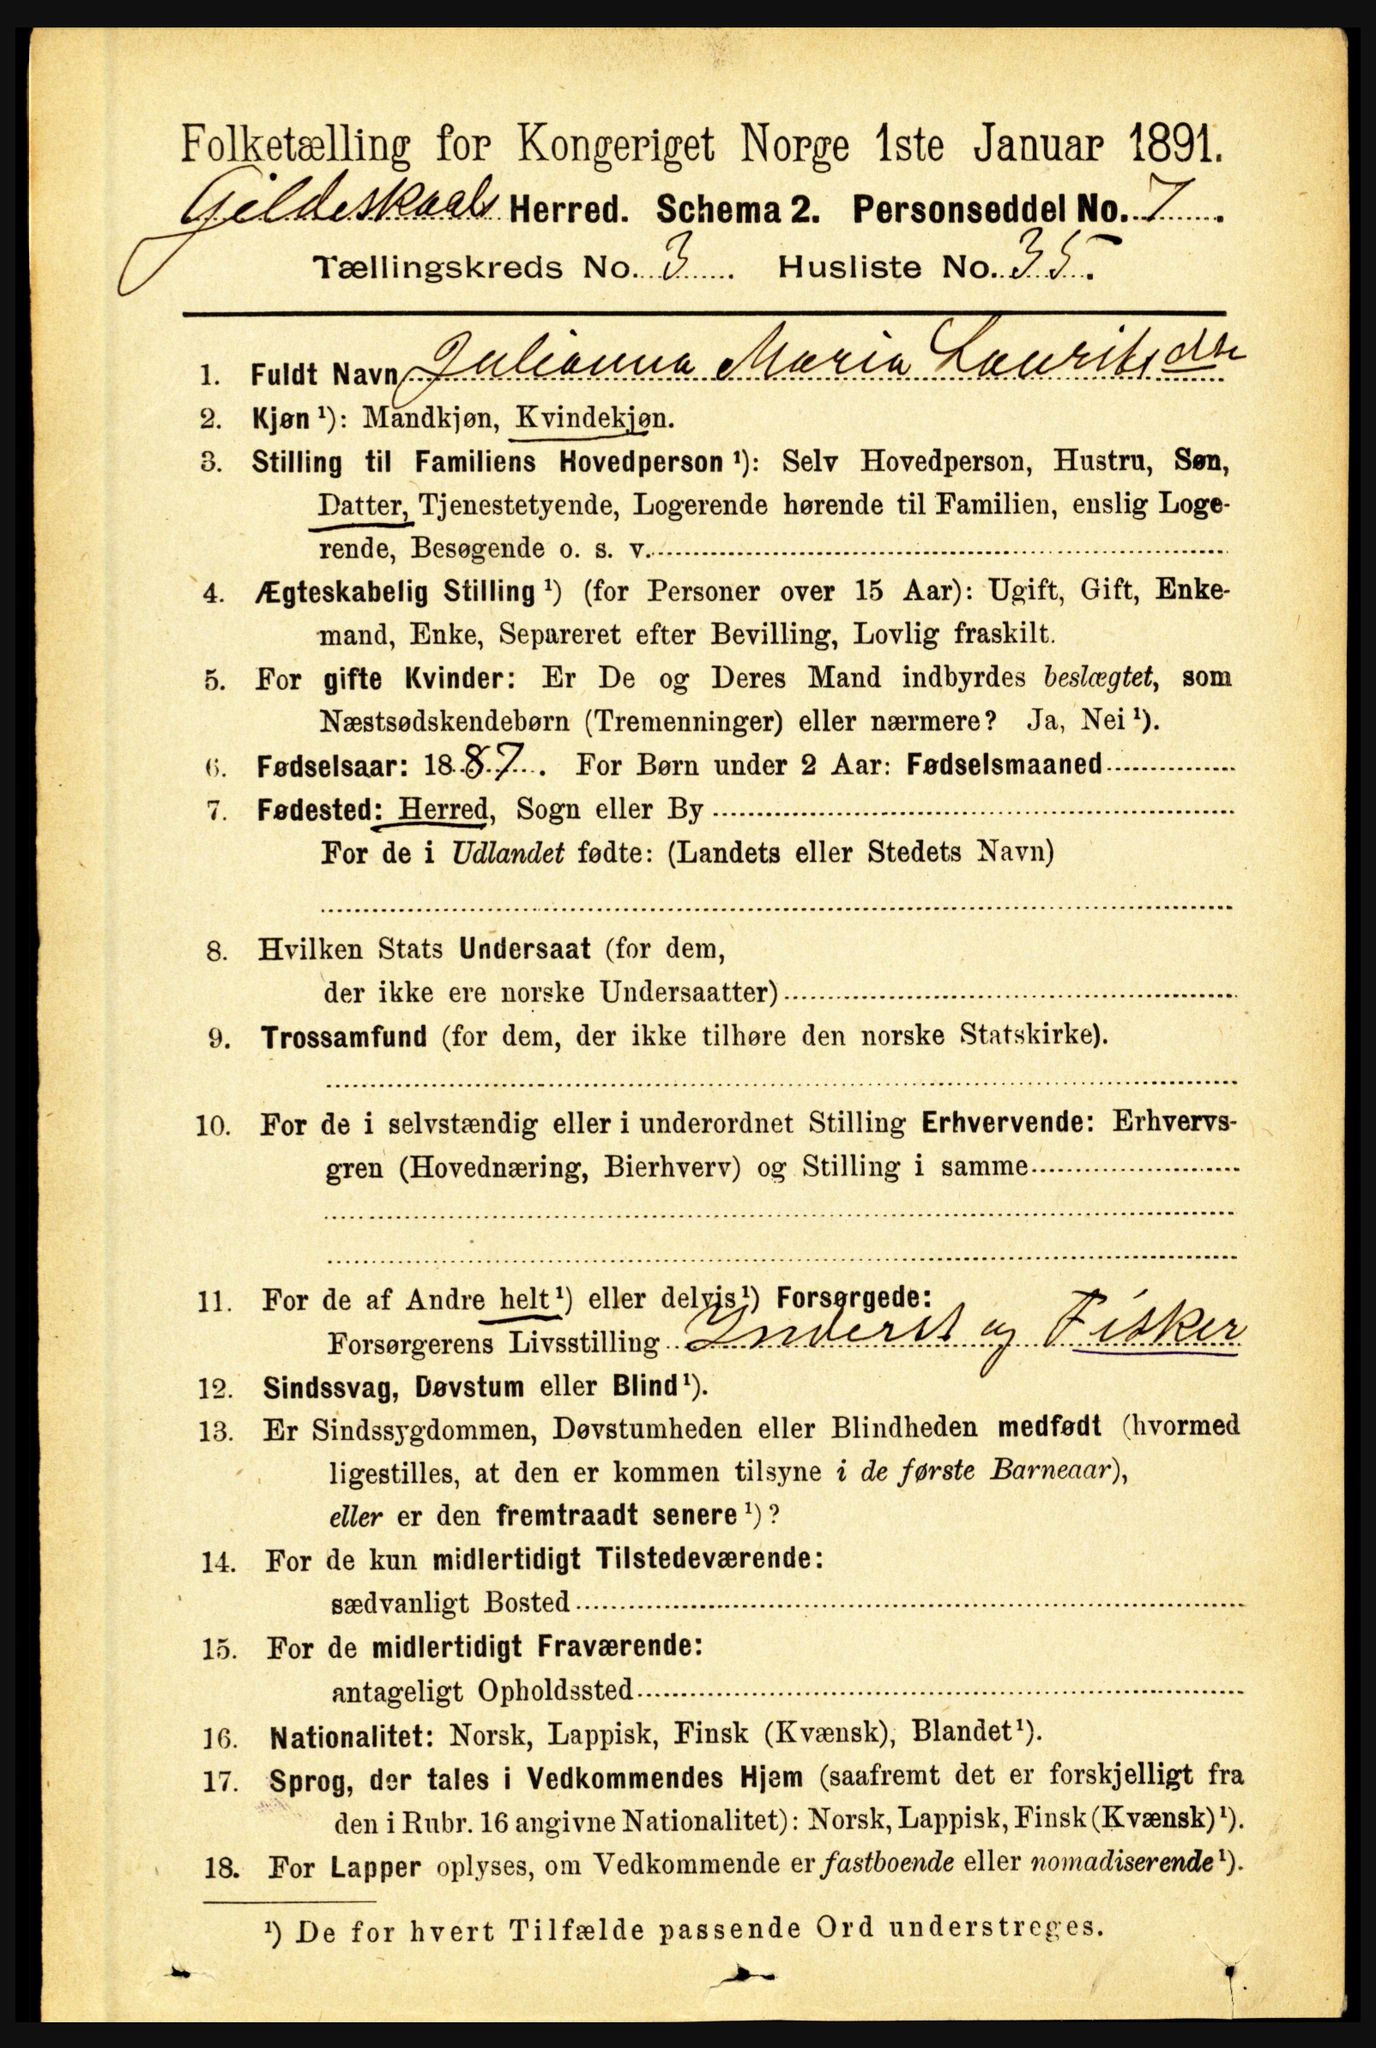 Folketælling for Kongeriget Norge 1ste Januar 1891.
Gildeskaals Herred. Schema 2. Personseddel No. 7.
Tællingskreds No. 3. Husliste No. 35.
1. Fuldt Navn Julianna Maria Lauritsdtr
2. Kjøn ¹): Mandkjøn, Kvindekjøn.
3. Stilling til Familiens Hovedperson ¹): Selv Hovedperson, Hustru, Søn,
Datter, Tjenestetyende, Logerende hørende til Familien, enslig Loge-
rende, Besøgende o. s. v.
4. Ægteskabelig Stilling ¹) (for Personer over 15 Aar): Ugift, Gift, Enke-
mand, Enke, Separeret efter Bevilling, Lovlig fraskilt.
5. For gifte Kvinder: Er De og Deres Mand indbyrdes beslægtet, som
Næstsødskendebørn (Tremenninger) eller nærmere? Ja, Nei ¹).
6. Fødselsaar: 1887. For Børn under 2 Aar: Fødselsmaaned
7. Fødested: Herred, Sogn eller By
For de i Udlandet fødte: (Landets eller Stedets Navn)
8. Hvilken Stats Undersaat (for dem,
der ikke ere norske Undersaatter)
9. Trossamfund (for dem, der ikke tilhøre den norske Statskirke).
10. For de i selvstændig eller i underordnet Stilling Erhvervende: Erhvervs-
gren (Hovednæring, Bierhverv) og Stilling i samme
11. For de af Andre helt ¹) eller delvis ¹) Forsørgede:
Forsørgerens Livsstilling Inderst og Fisker
12. Sindssvag, Døvstum eller Blind ¹).
13. Er Sindssygdommen, Døvstumheden eller Blindheden medfødt (hvormed
ligestilles, at den er kommen tilsyne i de første Barneaar),
eller er den fremtraadt senere ¹)?
14. For de kun midlertidigt Tilstedeværende:
sædvanligt Bosted
15. For de midlertidigt Fraværende:
antageligt Opholdssted
16. Nationalitet: Norsk, Lappisk, Finsk (Kvænsk), Blandet ¹).
17. Sprog, der tales i Vedkommendes Hjem (saafremt det er forskjelligt fra
den i Rubr. 16 angivne Nationalitet): Norsk, Lappisk, Finsk (Kvænsk) ¹).
18. For Lapper oplyses, om Vedkommende er fastboende eller nomadiserende ¹).
¹) De for hvert Tilfælde passende Ord understreges.